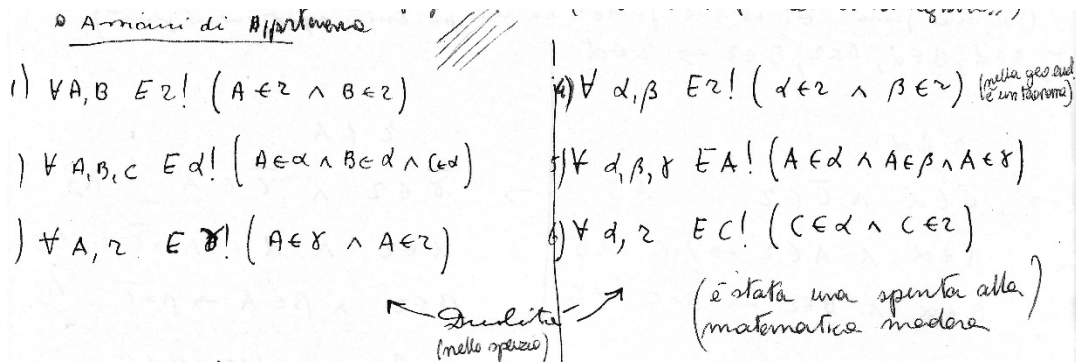 Assiomi di Appartenenza
1) ∀ A,B E r! (A ∈ r ∧ B ∈ r)
) ∀ A,B,C E α! (A ∈ α ∧ B ∈ α ∧ C ∈ α)
) ∀ A, r E γ! (A ∈ γ ∧ A ∈ r)
4) ∀ α, β E r! (α ∈ r ∧ β ∈ r) (nella geo eucl. è un teorema)
5) ∀ α, β, γ E A! (A ∈ α ∧ A ∈ β ∧ A ∈ γ)
6) ∀ α, r E C! (C ∈ α ∧ C ∈ r)
Dualità
(nello spazio)
(è stata una spinta alla
matematica moderna)